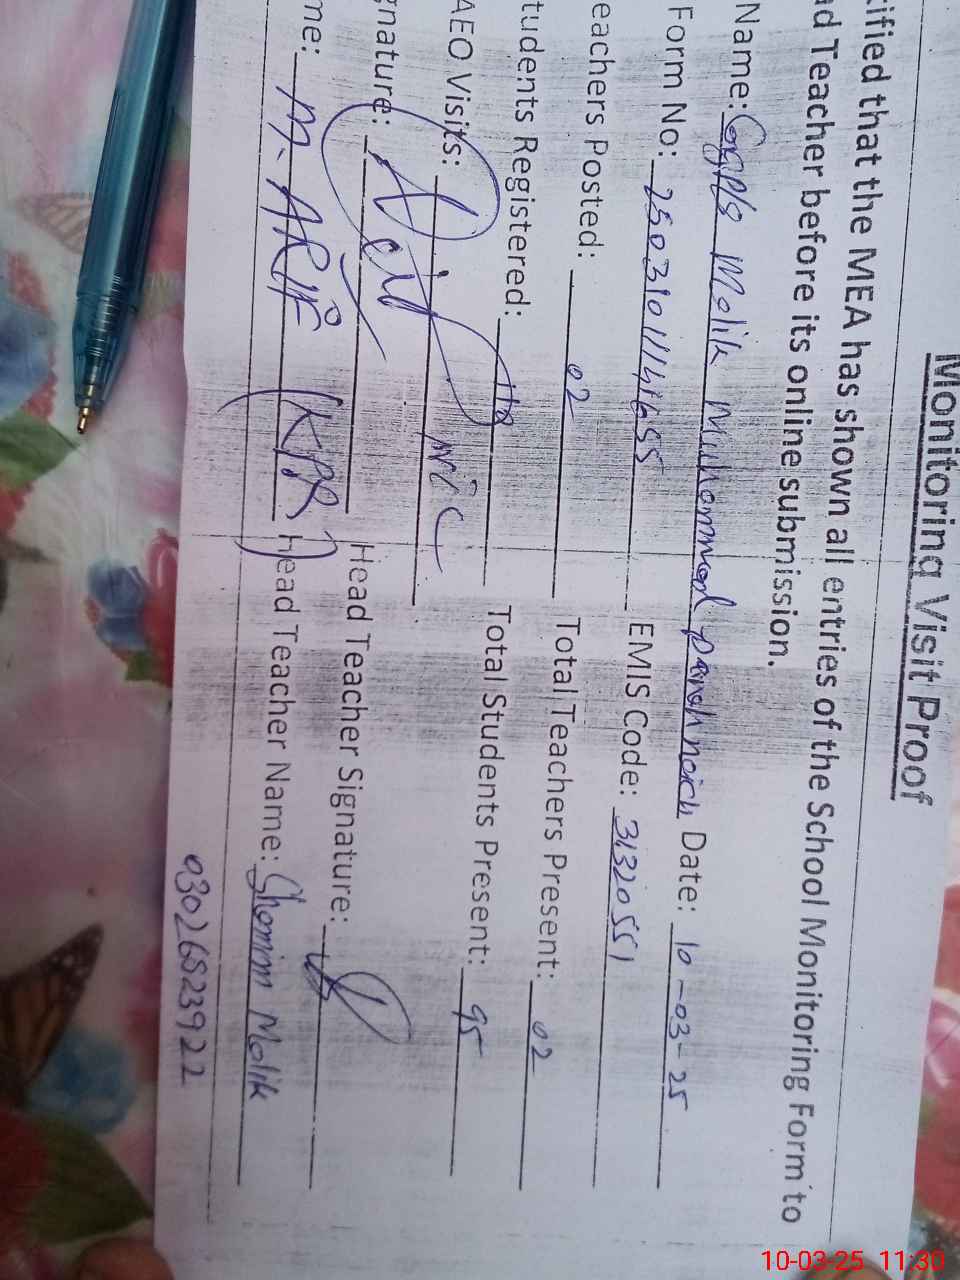 Monitoring Visit Proof
ified that the MEA has shown all entries of the School Monitoring Form to
d Teacher before its online submission.
Name: Ggps Malik Muhammad panah noich Date: 10-03-25
Form No: EMIS Code: 31320551
eachers Posted: 02 Total Teachers Present: 02
tudents Registered: Total Students Present: 95
AEO Visits: NiL
gnature: Head Teacher Signature:
me: M. ARIF (KPR) Head Teacher Name: Shamim Malik
03026523922
10-03-25 11:30